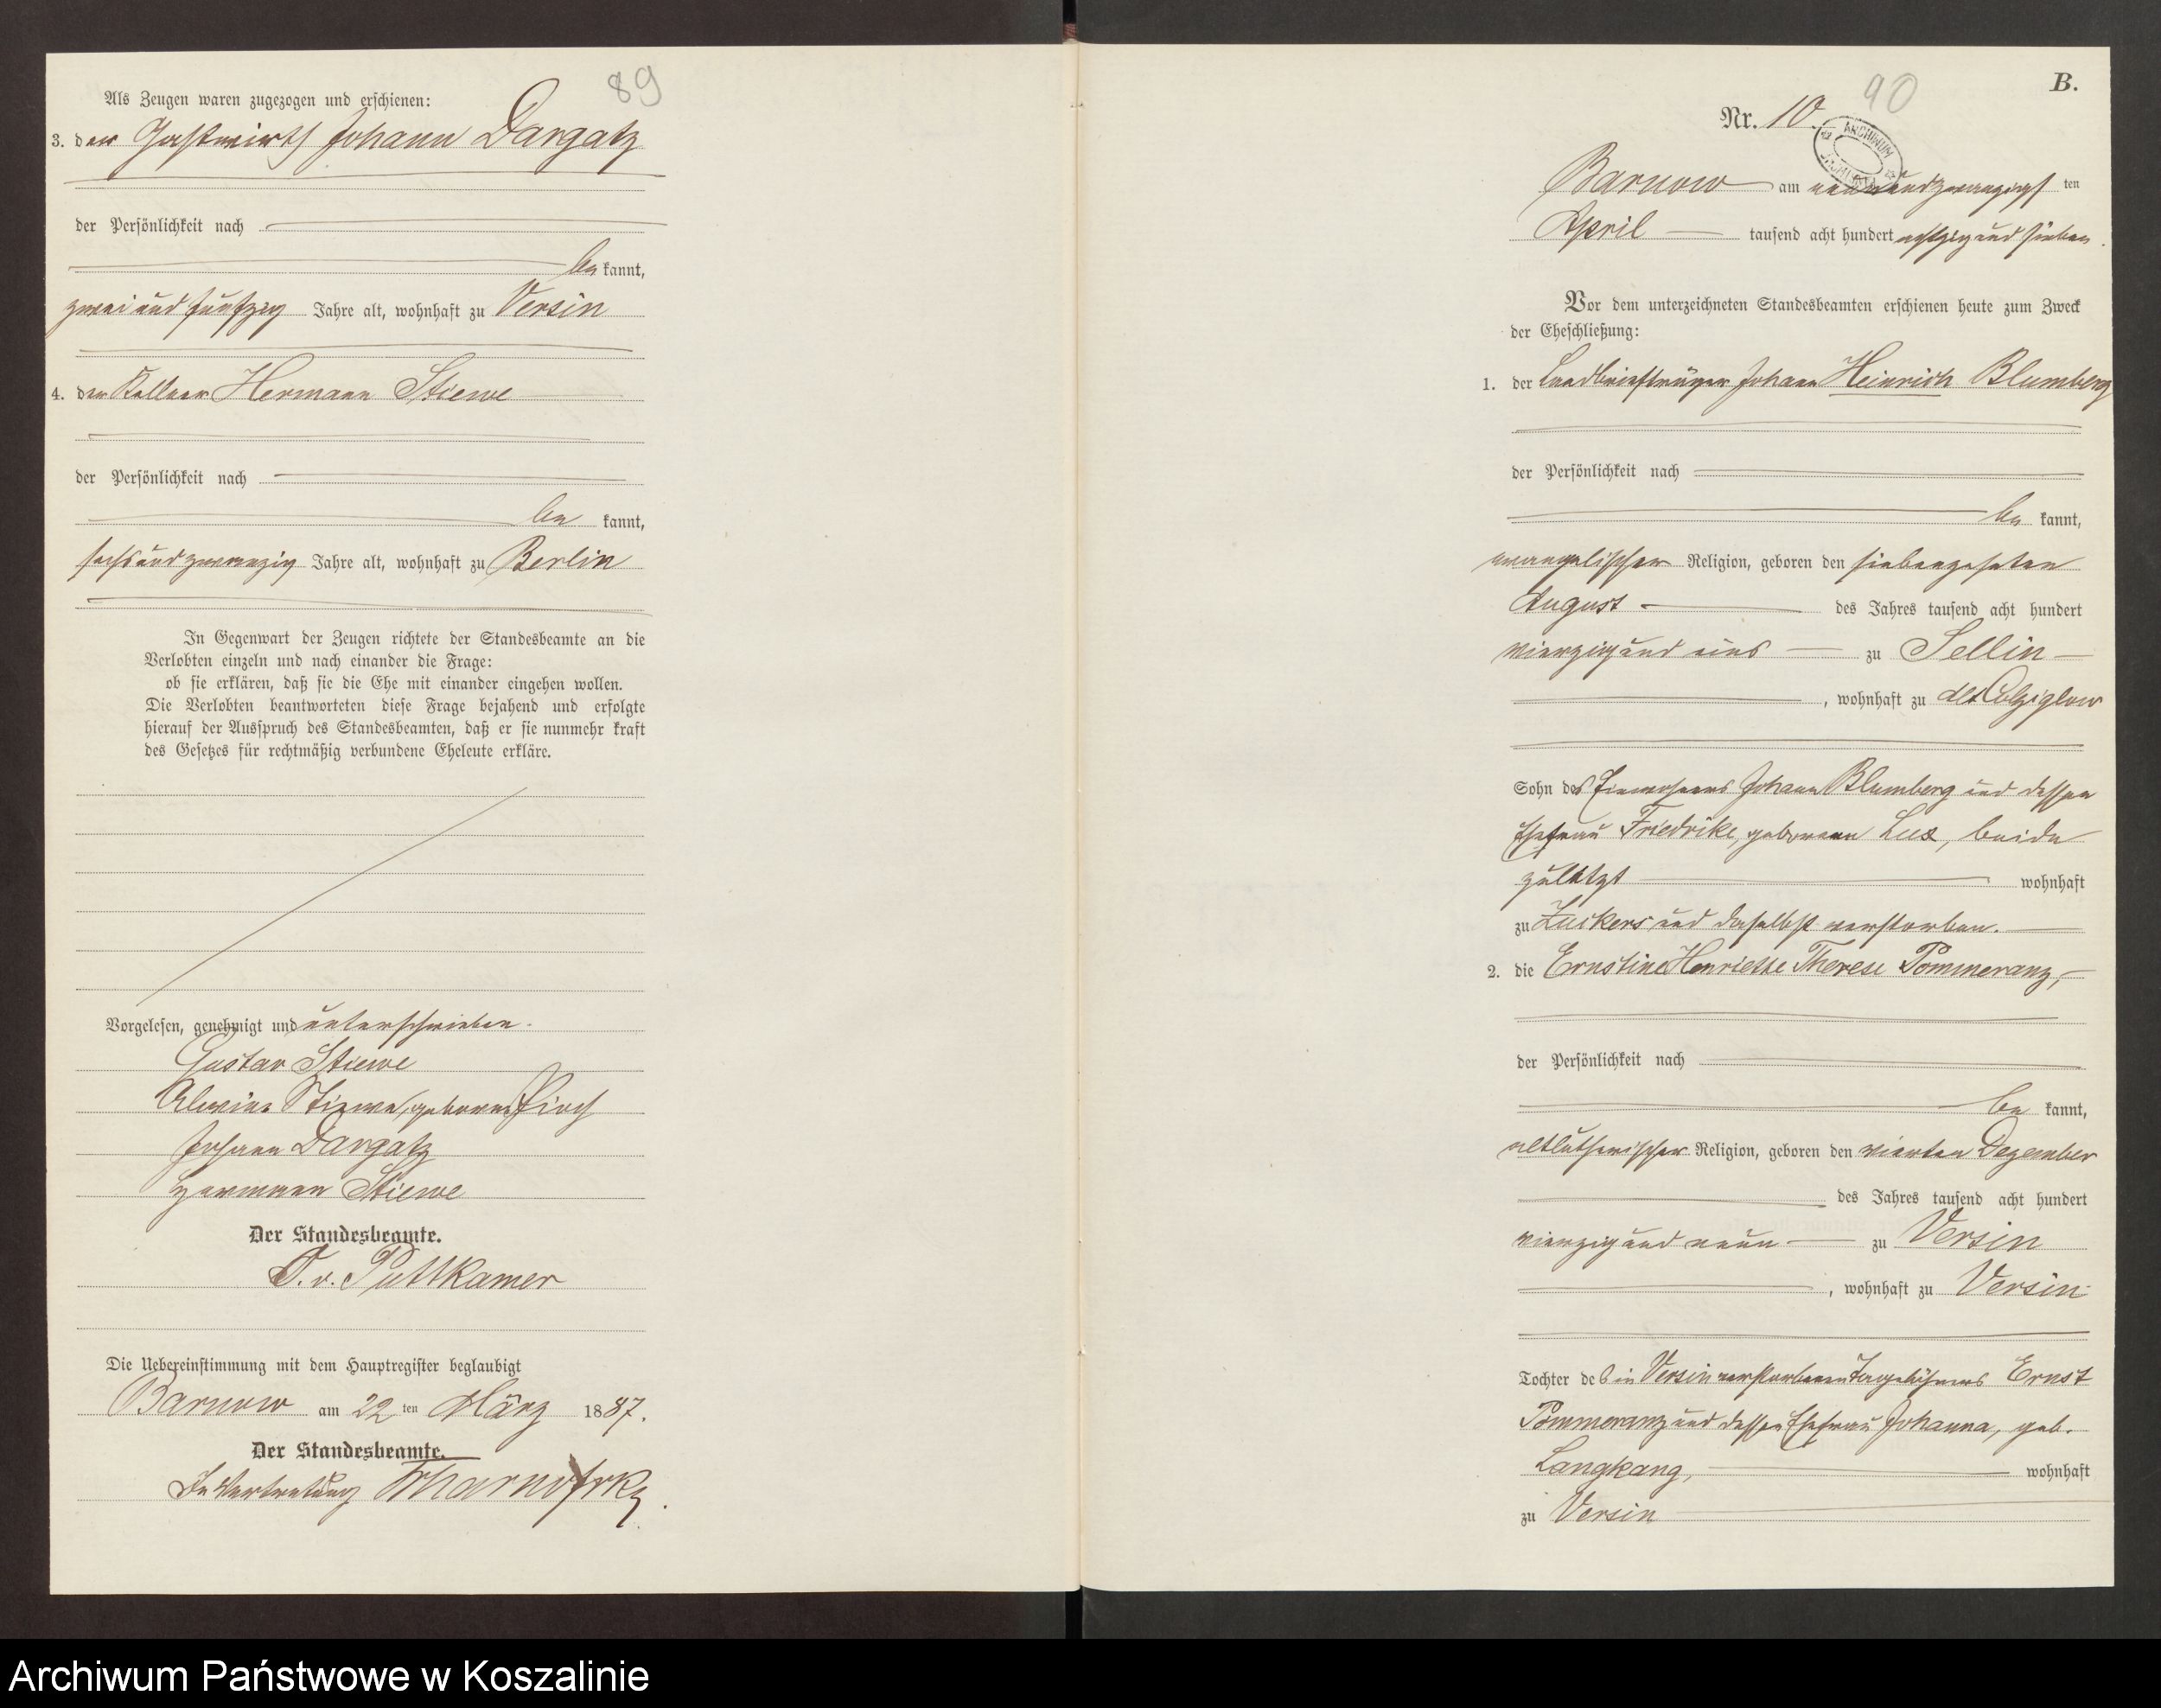 89
Als Zeugen waren zugezogen und erschienen:
3. der Gastwirth Johann Dargatz
der Persönlichkeit nach
be kannt,
zwei und fünfzig Jahre alt, wohnhaft zu Versin
4. der Kellner Hermann Stiewe
der Persönlichkeit nach
be kannt,
sechsundzwanzig Jahre alt, wohnhaft zu Berlin
In Gegenwart der Zeugen richtete der Standesbeamte an die
Verlobten einzeln und nach einander die Frage:
ob sie erklären, daß sie die Ehe mit einander eingehen wollen.
Die Verlobten beantworteten diese Frage bejahend und erfolgte
hierauf der Ausspruch des Standesbeamten, daß er sie nunmehr kraft
des Gesetzes für rechtmäßig verbundene Eheleute erkläre.
Vorgelesen, genehmigt und unterschrieben.
Gustav Stiewe
Alwine Stiewe, geborene Pirch
Johann Dargatz
Hermann Stiewe
Der Standesbeamte.
v. Puttkamer
Die Uebereinstimmung mit dem Hauptregister beglaubigt
Barnow am 22 ten März 1887.
Der Standesbeamte.
In Vertretung
90
B.
Nr. 10.
ARCHIWUM
Barnow am neunundzwanzigst ten
April tausend acht hundert achtzig und sieben.
Vor dem unterzeichneten Standesbeamten erschienen heute zum Zweck
der Eheschließung:
1. der Landbriefträger Johann Heinrich Blumberg
der Persönlichkeit nach
be kannt,
evangelischer Religion, geboren den siebenzehnten
August des Jahres tausend acht hundert
vierzig und eins zu Sellin
, wohnhaft zu Alt Colziglow
Sohn des Einwohners Johann Blumberg und dessen
Ehefrau Friedrike, geborenen Lux, beide
zuletzt wohnhaft
zu Zuckers und daselbst verstorben.
2. die Ernstine Henriette Therese Pommeranz,
der Persönlichkeit nach
be kannt,
altlutherischer Religion, geboren den vierten Dezember
des Jahres tausend acht hundert
vierzig und neun zu Versin
, wohnhaft zu Versin
Tochter des in Versin verstorbenen Tagelöhners Ernst
Pommeranz und dessen Ehefrau Johanna, geb.
Langkang, wohnhaft
zu Versin
Archiwum Państwowe w Koszalinie